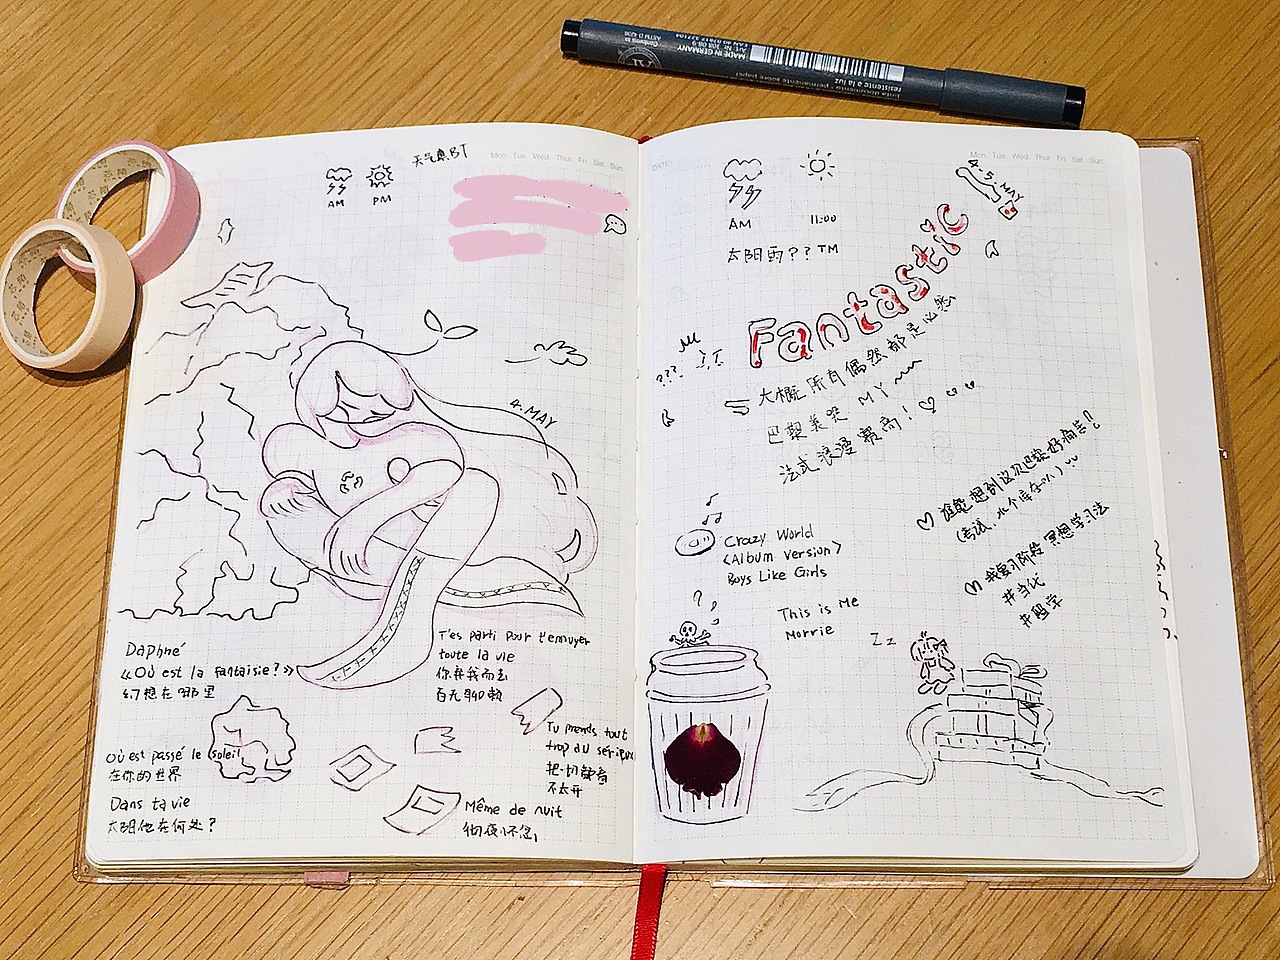 MADE IN GERMANY
Art. Nr. 308 08-9
resistente a la luz
tinta documento · permanente sobre papel
天气真BT
Mon. Tue. Wed. Thur. Fri. Sat. Sun.
AM PM
4.MAY
Daphné
《Où est la Fantaisie?》
幻想在哪里
Où est passé le soleil
在你的世界
Dans ta vie
太阳他在何处?
T'es parti pour t'ennuyer
toute la vie
你弃我而去
百无聊赖
Tu prends tout
trop du sérieux
把一切
不太开
Même de nuit
彻夜不怠,
DATE:
Mon. Tue. Wed. Thur. Fri. Sat. Sun.
AM 11:00
太阳雨??TM
4.5.MAY
Fantastic
???
大概所有偶然都是必然
巴黎美哭 MY
法式浪漫赛高!
谁能想到这次巴黎好痛苦!!
(考试,
我复习阶段冥想学习法
#当代
#留学
Crazy World
<Album Version>
Boys Like Girls
This is Me
Morrie
Zz